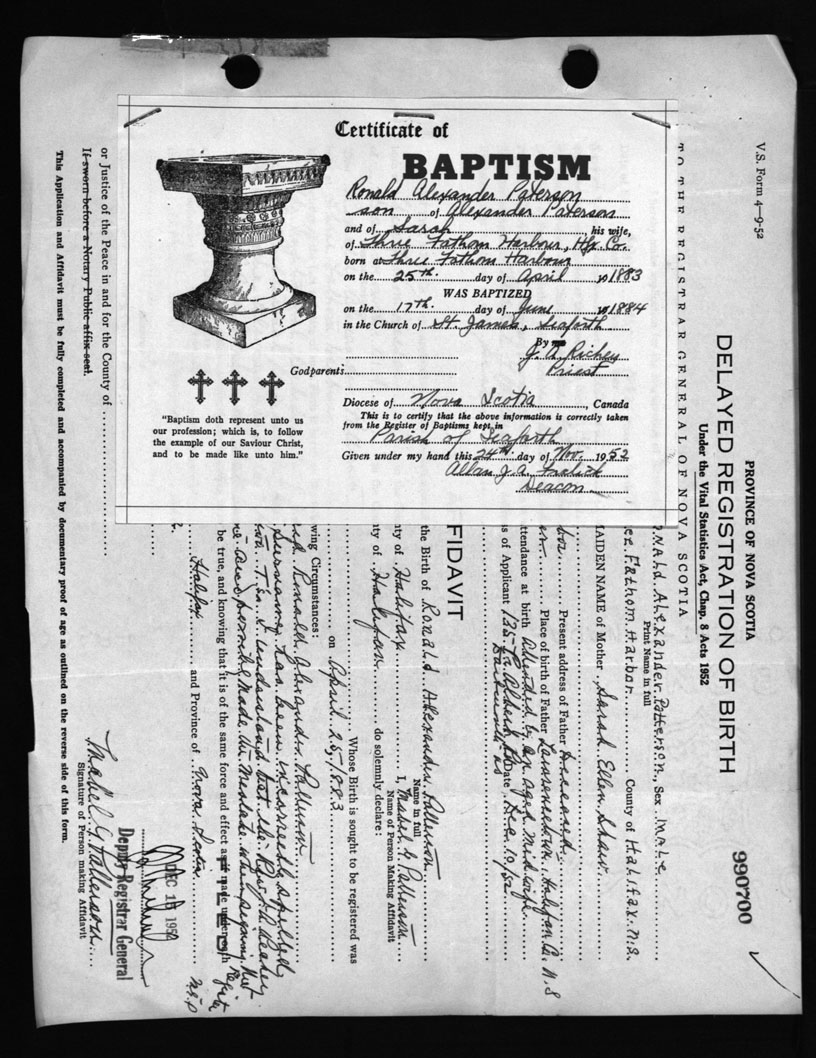 Certificate of
BAPTISM
Ronald Alexander Paterson
son of Alexander Paterson
and of Sarah his wife,
of Three Fathom Harbour, Hfx. Co.
born at Three Fathom Harbour
on the 25th. day of April 1883
WAS BAPTIZED
on the 17th. day of June 1884
in the Church of St. James, Seaforth
By J. A. Richey
Priest
Godparents
Diocese of Nova Scotia, Canada
This is to certify that the above information is correctly taken
from the Register of Baptisms kept in
Parish of Seaforth
Given under my hand this 24th. day of Nov. 1952
Allan J. A.
Deacon
"Baptism doth represent unto us
our profession; which is, to follow
the example of our Saviour Christ,
and to be made like unto him."
V.S. Form 4—9-52
990700
PROVINCE OF NOVA SCOTIA
DELAYED REGISTRATION OF BIRTH
Under the Vital Statistics Act, Chap. 8 Acts 1952
TO THE REGISTRAR GENERAL OF NOVA SCOTIA
Alexander Patterson, Sex Male
Print Name in full
Fathom Harbor County of Halifax. N.S.
MAIDEN NAME of Mother Sarah Ellen Shaw.
Present address of Father Deceased.
Place of birth of Father Lawrencetown, Halifax Co. N.S
attendance at birth Attended by an aged Midwife
of Applicant Date Dec. 10/52
FIDAVIT
the Birth of Ronald Alexander Patterson
Name in full
I, Mabel G Patterson
Name of Person Making Affidavit
ty of Halifax
ty of Halifax do solemnly declare:
Whose Birth is sought to be registered was
on April. 25/1883
wing Circumstances:
Ronald Alexander Patterson
surname has been incorrectly spelled
be true, and knowing that it is of the same force and effect as if made under oath
Halifax and Province of Nova Scotia
DEC 1 195
Deputy Registrar General
Mabel G Patterson
Signature of Person making Affidavit
or Justice of the Peace in and for the County of
If sworn before a Notary Public affix seal.
This Application and Affidavit must be fully completed and accompanied by documentary proof of age as outlined on the reverse side of this form.